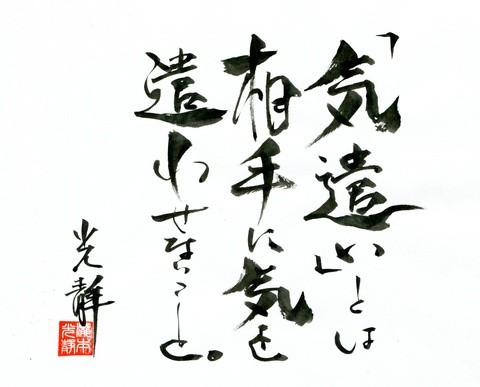 「気遣い」とは
相手に気を
遣わせないこと。
光靜